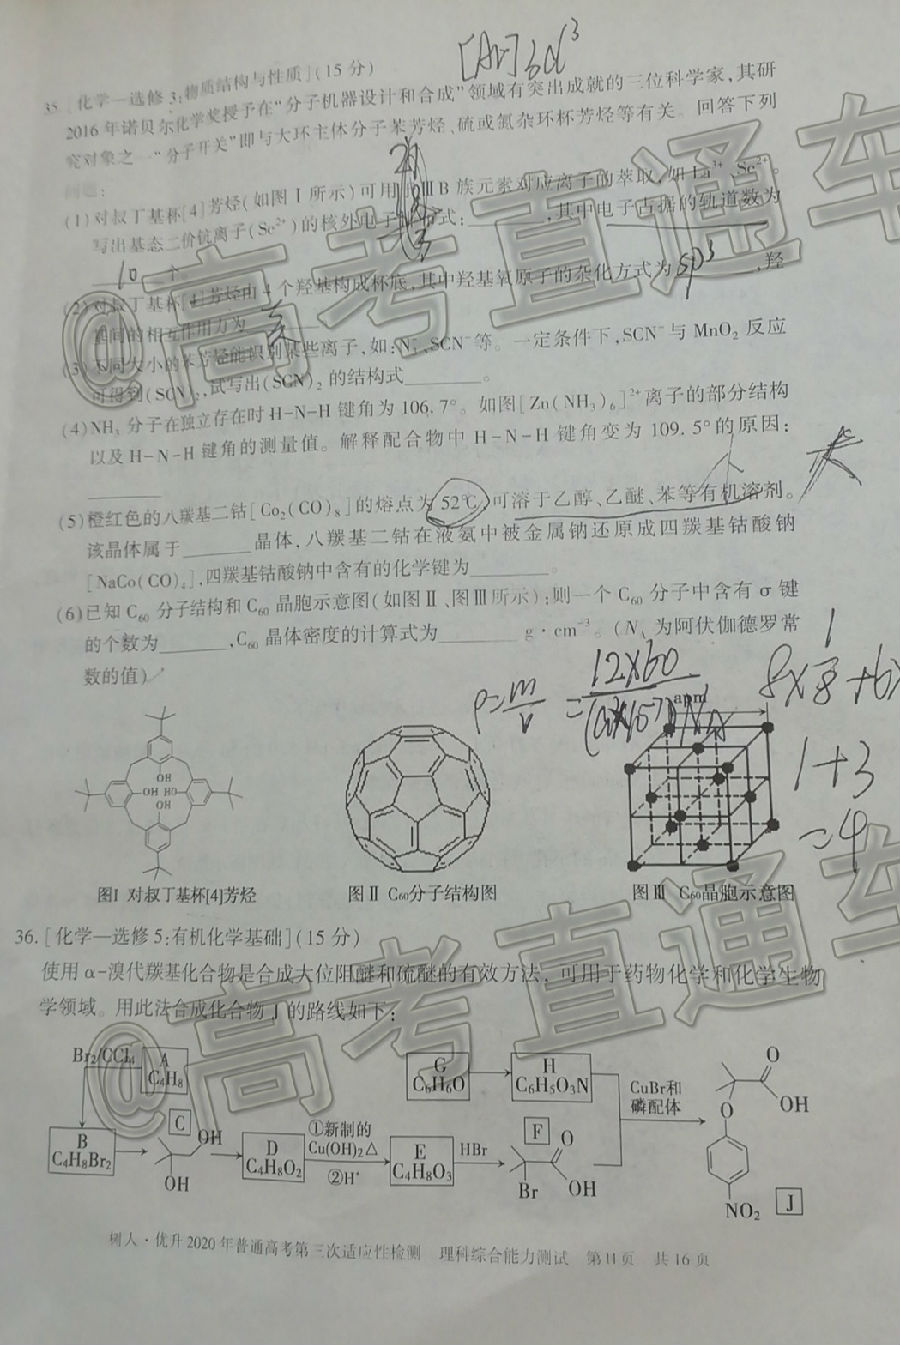 [Ar]3d³
35. [化学—选修3:物质结构与性质](15分)
2016年诺贝尔化学奖授予在“分子机器设计和合成”领域有突出成就的三位科学家,其研
究对象之一“分子开关”即与大环主体分子苯芳烃、硫或氮杂环杯芳烃等有关。回答下列
问题:
(1)对叔丁基杯[4]芳烃(如图Ⅰ所示)可用于ⅢB族元素对应离子的萃取,如La³⁺、Sc²⁺。
写出基态二价钪离子(Sc²⁺)的核外电子 式:,其中电子占据的轨道数为
10 个。
(2)对叔丁基杯[4]芳烃由4个羟基构成杯底,其中羟基氧原子的杂化方式为 sp³ ,羟
基间的相互作用力为
(3)不同大小的苯芳烃能识别某些离子,如:N₃⁻、SCN⁻等。一定条件下,SCN⁻与MnO₂反应
可得到(SCN)₂,试写出(SCN)₂的结构式。
(4)NH₃分子在独立存在时H-N-H键角为106.7°。如图[Zn(NH₃)₆]²⁺离子的部分结构
以及H-N-H键角的测量值。解释配合物中H-N-H键角变为109.5°的原因:
(5)橙红色的八羰基二钴[Co₂(CO)₈]的熔点为52℃,可溶于乙醇、乙醚、苯等有机溶剂。
该晶体属于晶体,八羰基二钴在液氨中被金属钠还原成四羰基钴酸钠
[NaCo(CO)₄],四羰基钴酸钠中含有的化学键为。
(6)已知C₆₀分子结构和C₆₀晶胞示意图(如图Ⅱ、图Ⅲ所示);则一个C₆₀分子中含有σ键
的个数为,C₆₀晶体密度的计算式为 g·cm⁻³。(Nₐ为阿伏伽德罗常
数的值)
ρ=m/v
12×60
1+3
=4
a nm
OH
OH HO
OH
图Ⅰ 对叔丁基杯[4]芳烃
图Ⅱ C₆₀分子结构图
图Ⅲ C₆₀晶胞示意图
36. [化学—选修5:有机化学基础](15分)
使用α-溴代羰基化合物是合成大位阻醚和硫醚的有效方法,可用于药物化学和化学生物
学领域。用此法合成化合物J的路线如下:
Br₂/CCl₄
A
C₄H₈
G
C₆H₆O
H
C₆H₅O₃N
CuBr和
磷配体
B
C₄H₈Br₂
C
OH
OH
D
C₄H₈O₂
①新制的
Cu(OH)₂△
②H⁺
E
C₄H₈O₃
HBr
F
O
Br
OH
O
OH
O
NO₂
J
树人·优升2020年普通高考第三次适应性检测 理科综合能力测试 第11页 共16页
@高考直通车
@高考直通车